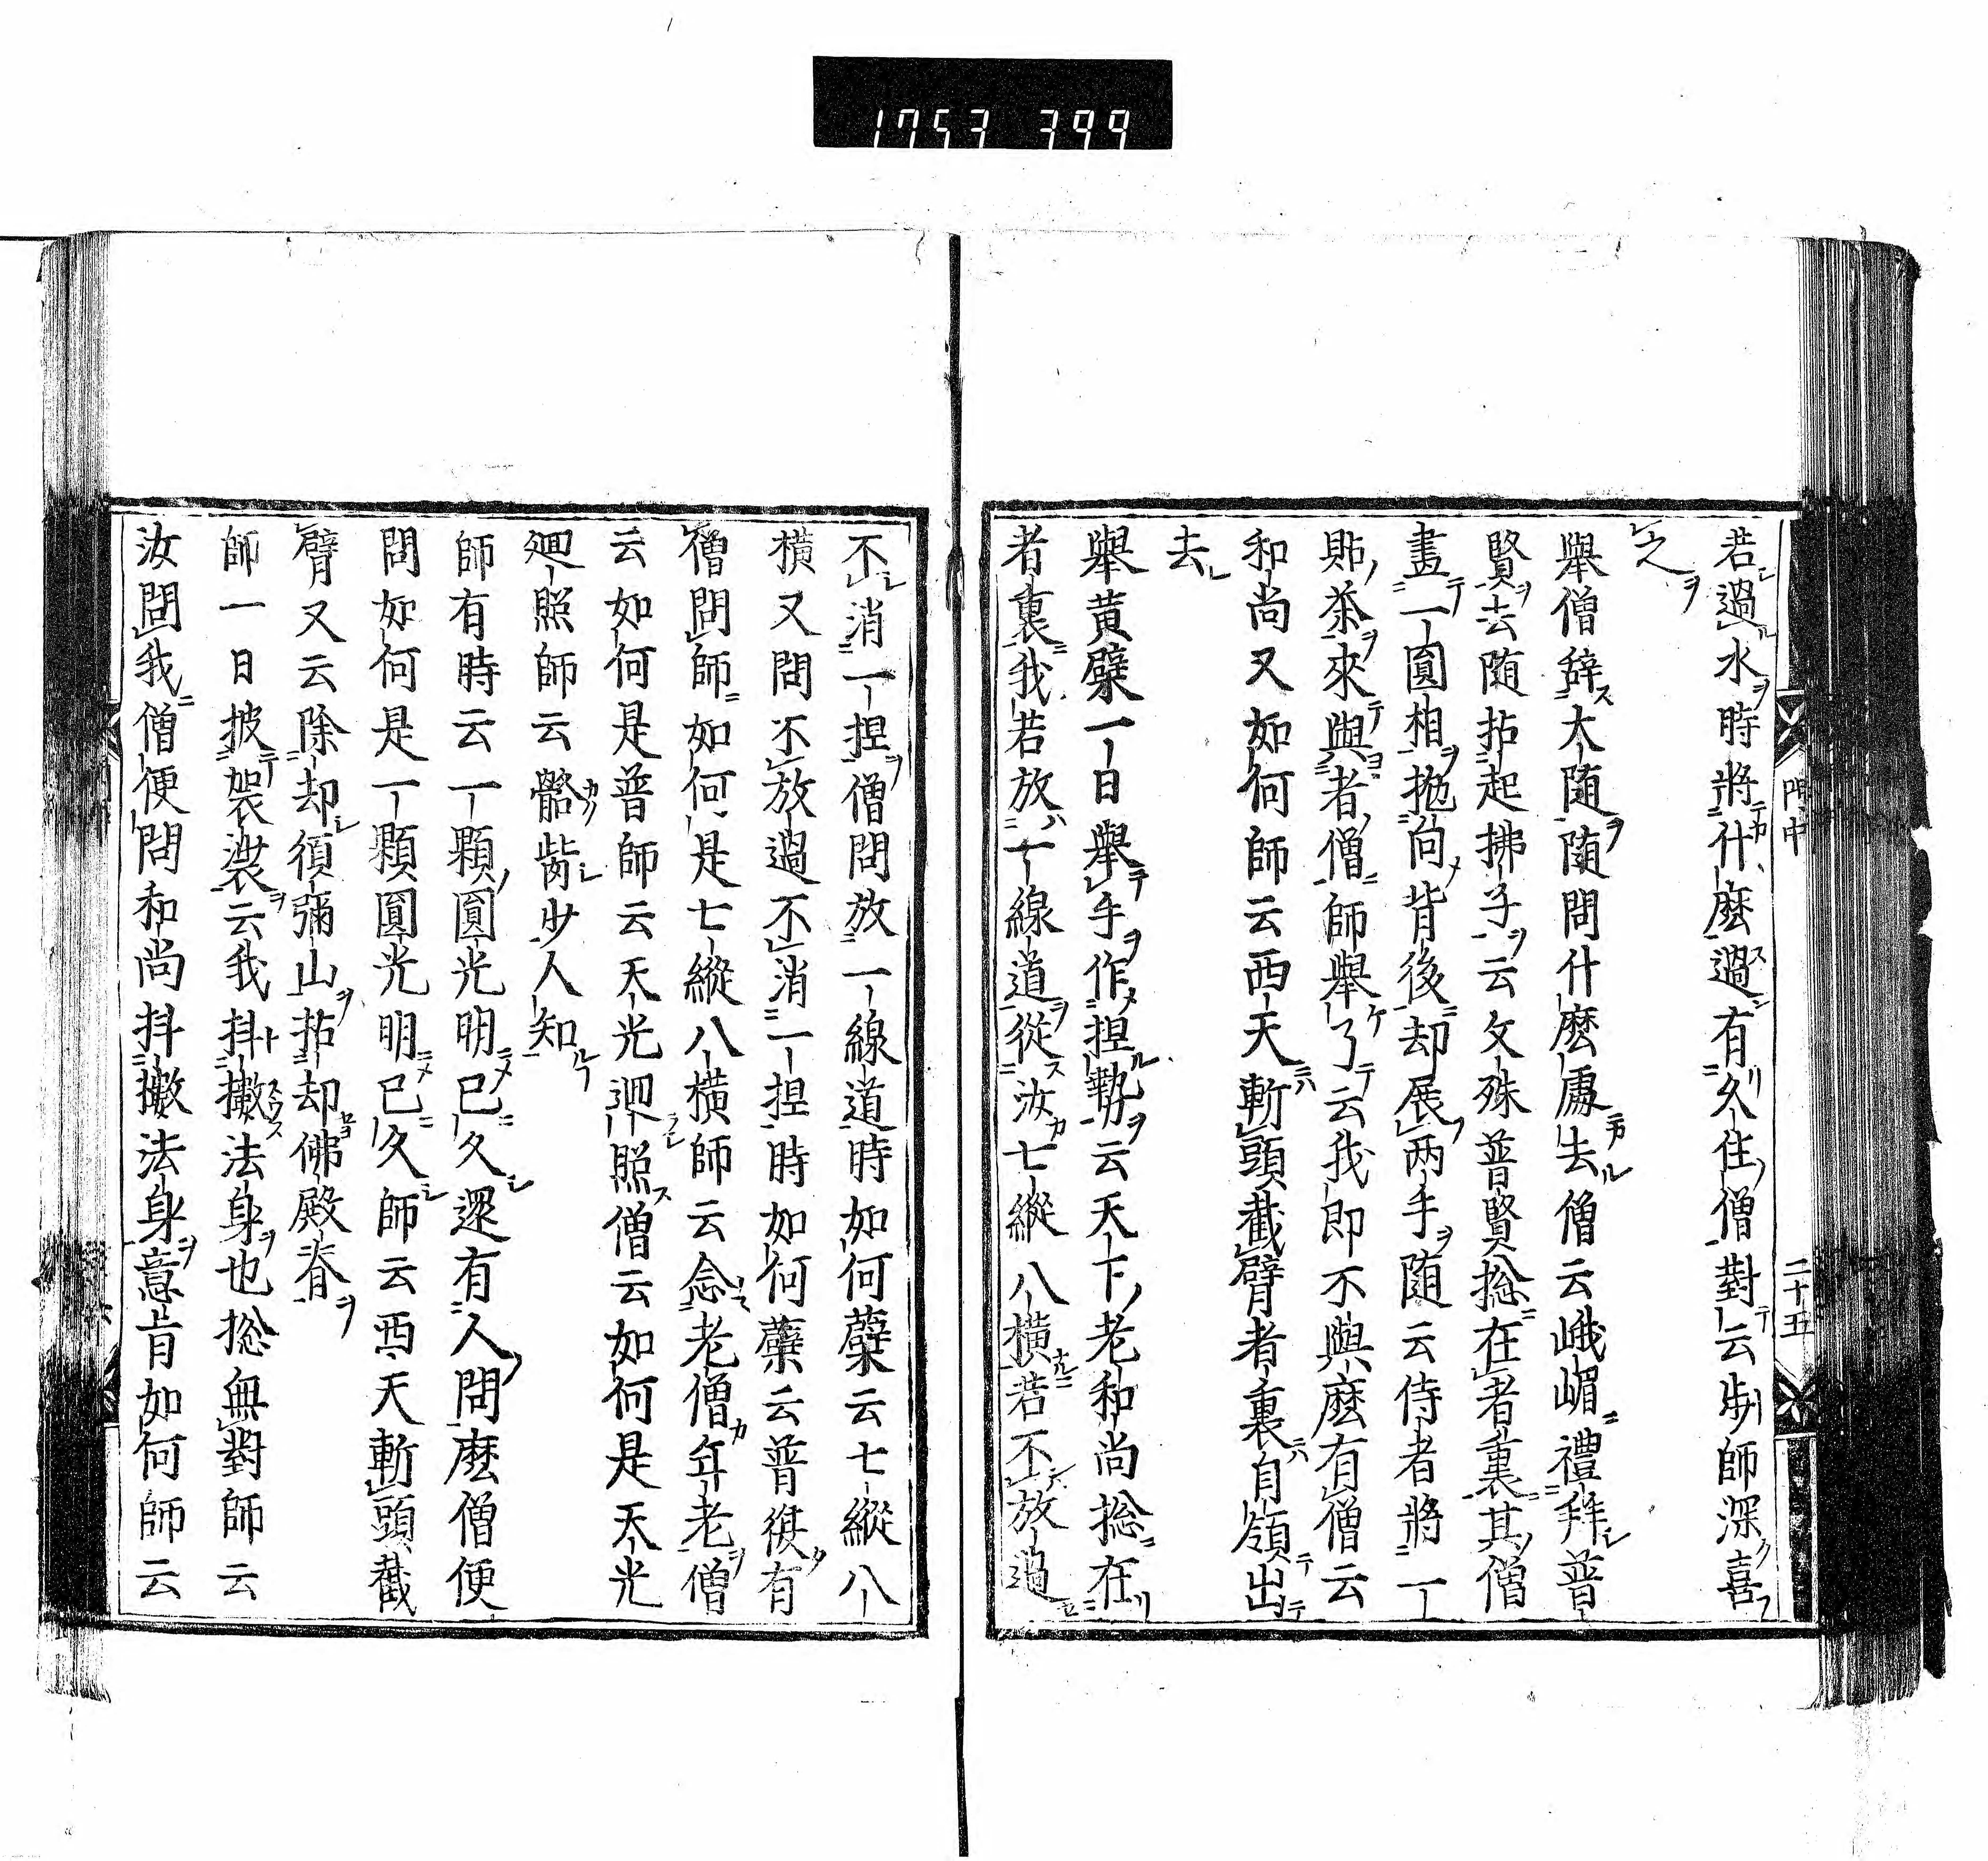 1753 399
門中 二十五
若過水時將什麼過有久住僧對云步師深喜
之
舉僧辭大隨隨問什麼處去僧云峨嵋禮拜普
賢去随拈起拂子云文殊普賢捴在者裏其僧
畫一圓相抛向背後却展兩手随云侍者將一
貼茶來與者僧師舉了云我即不與麼有僧云
和尚又如何師云西天斬頭截臂者裏自領出
去
舉黄檗一日舉手作捏勢云天下老和尚捴在
者裏我若放一線道從汝七縱八橫若不放過
不消一捏僧問放一線道時如何蘗云七縱八
橫又問不放過不消一捏時如何蘗云普後有
僧問師如何是七縱八橫師云念老僧年老僧
云如何是普師云天光迴照僧云如何是天光
廻照師云齾齒少人知
師有時云一顆圓光明已久還有人問麼僧便
問如何是一顆圓光明已久師云西天斬頭截
臂又云除却須彌山拈却佛殿脊
師一日披袈裟云我抖擻法身也捴無對師云
汝問我僧便問和尚抖擻法身意旨如何師云